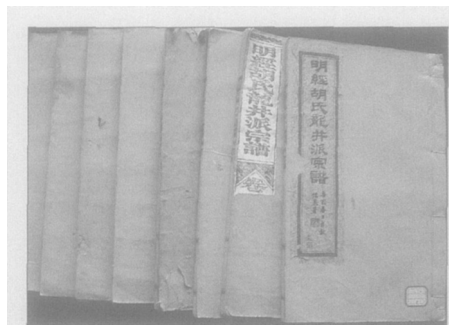 明經胡氏龍井派宗譜
明經胡氏龍井派宗譜
卷